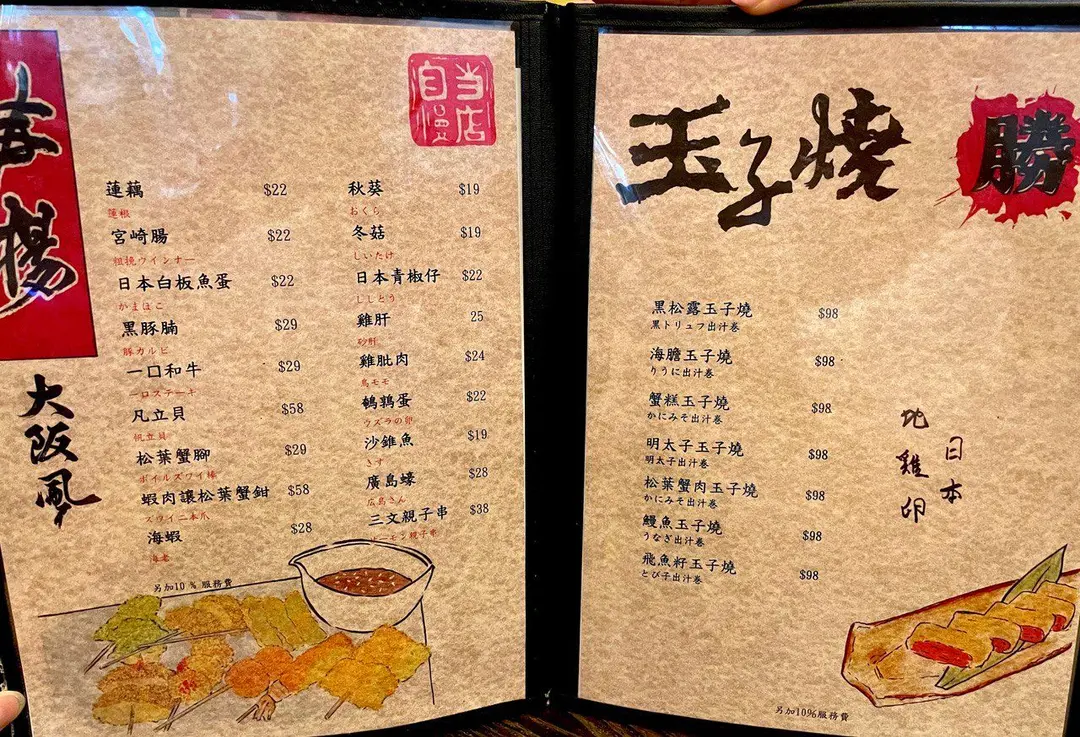 串揚
大阪風
当店
自慢
蓮藕 $22
蓮根
宮崎腸 $22
粗挽ウインナー
日本白板魚蛋 $22
かまぼこ
黑豚腩 $29
豚カルビ
一口和牛 $29
一口ステーキ
凡立貝 $58
帆立貝
松葉蟹腳 $29
ボイルズワイ棒
蝦肉讓松葉蟹鉗 $58
ズワイ二本爪
海蝦 $28
海老
秋葵 $19
おくら
冬菇 $19
しいたけ
日本青椒仔 $22
ししとう
雞肝 25
砂肝
雞肶肉 $24
鳥モモ
鵪鶉蛋 $22
ウズラの卵
沙錐魚 $19
きす
廣島蠔 $28
広島さん
三文親子串 $38
サーモン親子串
另加10％服務費
玉子燒
勝
黑松露玉子燒 $98
黒トリュフ出汁巻
海膽玉子燒 $98
りうに出汁巻
蟹糕玉子燒 $98
かにみそ出汁巻
明太子玉子燒 $98
明太子出汁巻
松葉蟹肉玉子燒 $98
かにみそ出汁巻
鰻魚玉子燒 $98
うなぎ出汁巻
飛魚籽玉子燒 $98
とび子出汁巻
日本
地雞卵
另加10%服務費